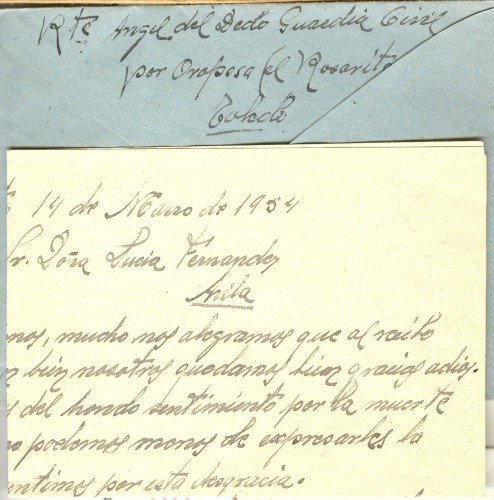 Rte Angel del Dedo Guardia Civil
por Oropesa (el) Rosarito
Toledo
14 de Marzo de 1954
Sr. Doña Lucia Fernandez
Avila
nos, mucho nos alegramos que al recito
n bien nosotros quedamos bien gracias adios.
s del hondo sentimiento por la muerte
no podemos menos de expresarles lo
entimos por esta desgracia.